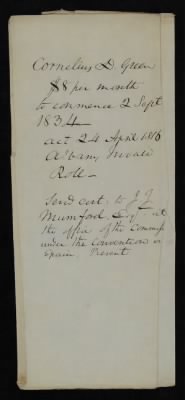 Cornelius D. Green
$8 per month
to commence 2 Sept
1834
act 24 April 1816
Albany Invali
Roll
Send cert. to J J
Mumford, Esq at
the office of the Commiss
under the Convention w
Spain Present